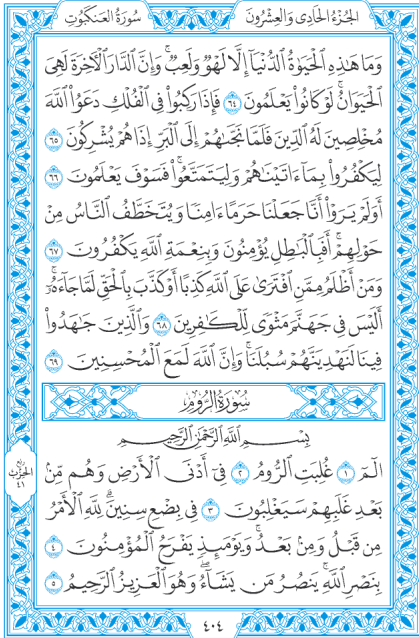 سُورَةُ العَنكَبُوتِ
الجُزْءُ الحَادِي وَالعِشْرُونَ
وَمَا هَٰذِهِ الْحَيَوٰةُ الدُّنْيَآ إِلَّا لَهْوٌ وَلَعِبٌ ۚ وَإِنَّ الدَّارَ الْءَاخِرَةَ لَهِىَ
الْحَيَوَانُ ۚ لَوْ كَانُوا۟ يَعْلَمُونَ ٦٤ فَإِذَا رَكِبُوا۟ فِى الْفُلْكِ دَعَوُا۟ اللَّهَ
مُخْلِصِينَ لَهُ الدِّينَ فَلَمَّا نَجَّىٰهُمْ إِلَى الْبَرِّ إِذَا هُمْ يُشْرِكُونَ ٦٥
لِيَكْفُرُوا۟ بِمَآ ءَاتَيْنَٰهُمْ وَلِيَتَمَتَّعُوا۟ ۖ فَسَوْفَ يَعْلَمُونَ ٦٦
أَوَلَمْ يَرَوْا۟ أَنَّا جَعَلْنَا حَرَمًا ءَامِنًا وَيُتَخَطَّفُ النَّاسُ مِنْ
حَوْلِهِمْ ۚ أَفَبِالْبَٰطِلِ يُؤْمِنُونَ وَبِنِعْمَةِ اللَّهِ يَكْفُرُونَ ٦٧
وَمَنْ أَظْلَمُ مِمَّنِ افْتَرَىٰ عَلَى اللَّهِ كَذِبًا أَوْ كَذَّبَ بِالْحَقِّ لَمَّا جَآءَهُۥٓ ۚ
أَلَيْسَ فِى جَهَنَّمَ مَثْوًى لِّلْكَٰفِرِينَ ٦٨ وَالَّذِينَ جَٰهَدُوا۟
فِينَا لَنَهْدِيَنَّهُمْ سُبُلَنَا ۚ وَإِنَّ اللَّهَ لَمَعَ الْمُحْسِنِينَ ٦٩
سُورَةُ الرُّومِ
بِسْمِ اللَّهِ الرَّحْمَٰنِ الرَّحِيمِ
الٓمٓ ١ غُلِبَتِ الرُّومُ ٢ فِىٓ أَدْنَى الْأَرْضِ وَهُم مِّنۢ
بَعْدِ غَلَبِهِمْ سَيَغْلِبُونَ ٣ فِى بِضْعِ سِنِينَ ۗ لِلَّهِ الْأَمْرُ
مِن قَبْلُ وَمِنۢ بَعْدُ ۚ وَيَوْمَئِذٍ يَفْرَحُ الْمُؤْمِنُونَ ٤
بِنَصْرِ اللَّهِ ۚ يَنصُرُ مَن يَشَآءُ ۖ وَهُوَ الْعَزِيزُ الرَّحِيمُ ٥
ربع
الحزب
٤١
٤٠٤